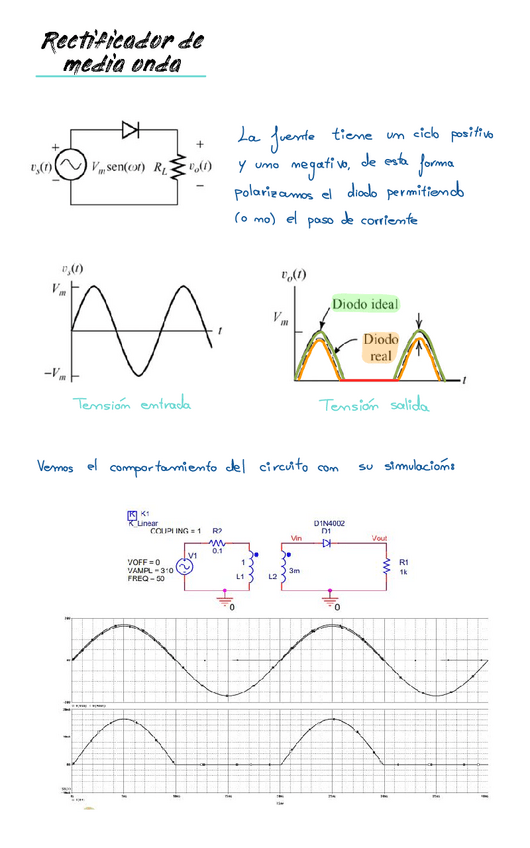 Rectificador de
media onda
+
+
v_s(t)
V_m sen(ωt)
R_L
v_o(t)
−
−
La fuente tiene un ciclo positivo
y uno negativo, de esta forma
polarizamos el diodo permitiendo
(o no) el paso de corriente
v_s(t)
V_m
t
−V_m
Tensión entrada
v_o(t)
Diodo ideal
V_m
Diodo
real
t
Tensión salida
Vemos el comportamiento del circuito con su simulación:
K K1
K_Linear
COUPLING = 1
R2
0.1
V1
VOFF = 0
VAMPL = 310
FREQ = 50
1
L1
L2
3m
Vin
D1N4002
D1
Vout
R1
1k
0
0